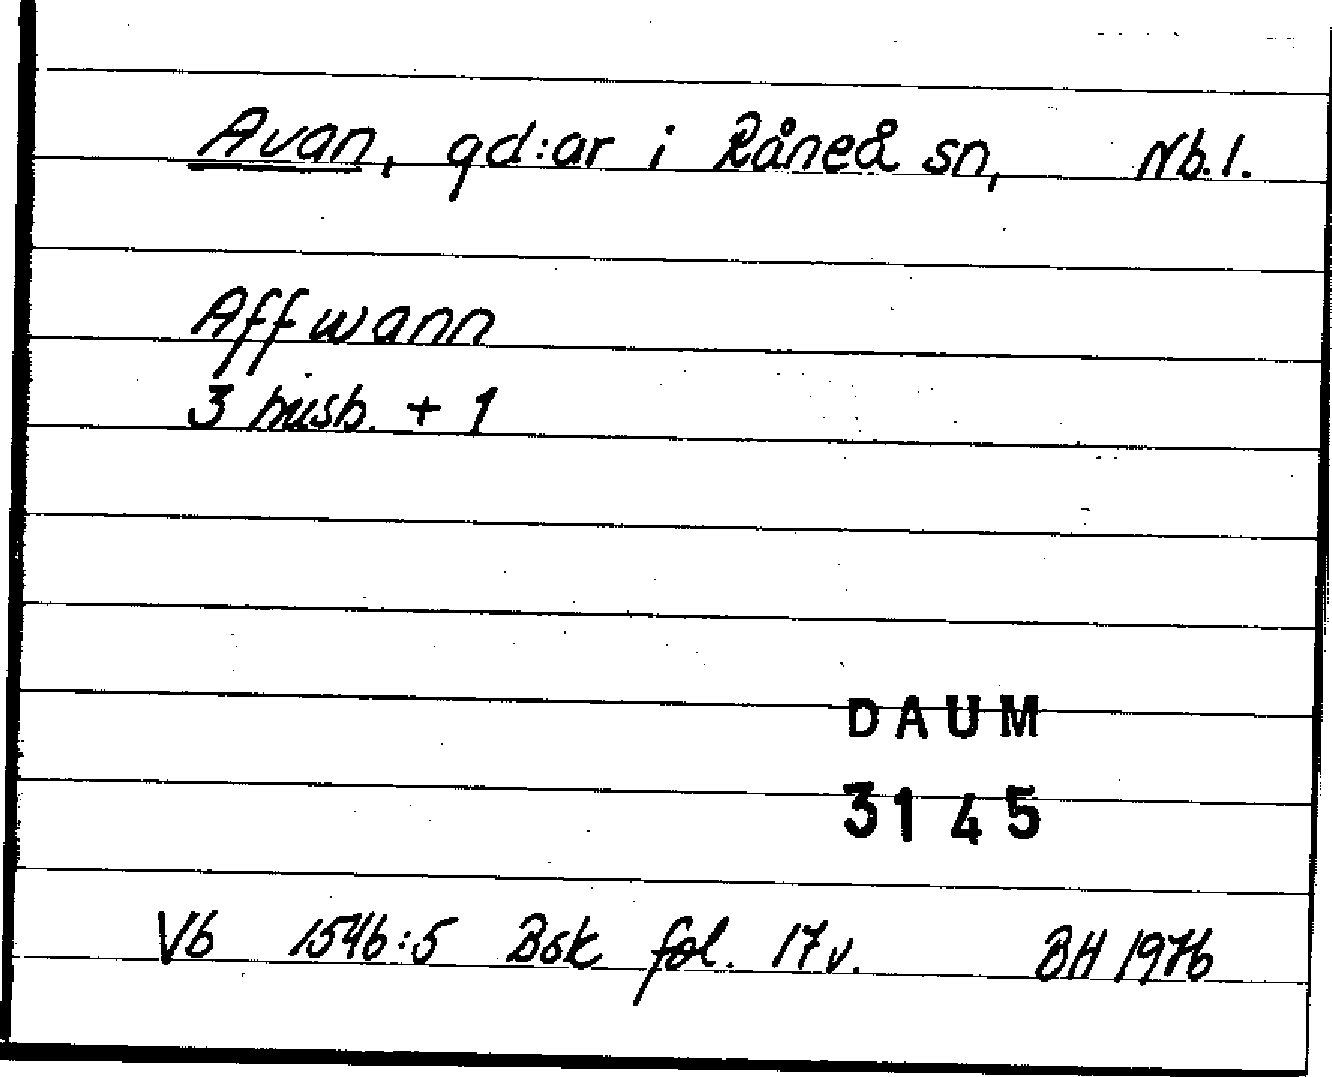 Avan, gd:ar i Råneå sn, Nb.l.
Affwann
3 husb. + 1
DAUM
3145
Vb 1546:5 Bsk fol. 17v. BH 1976